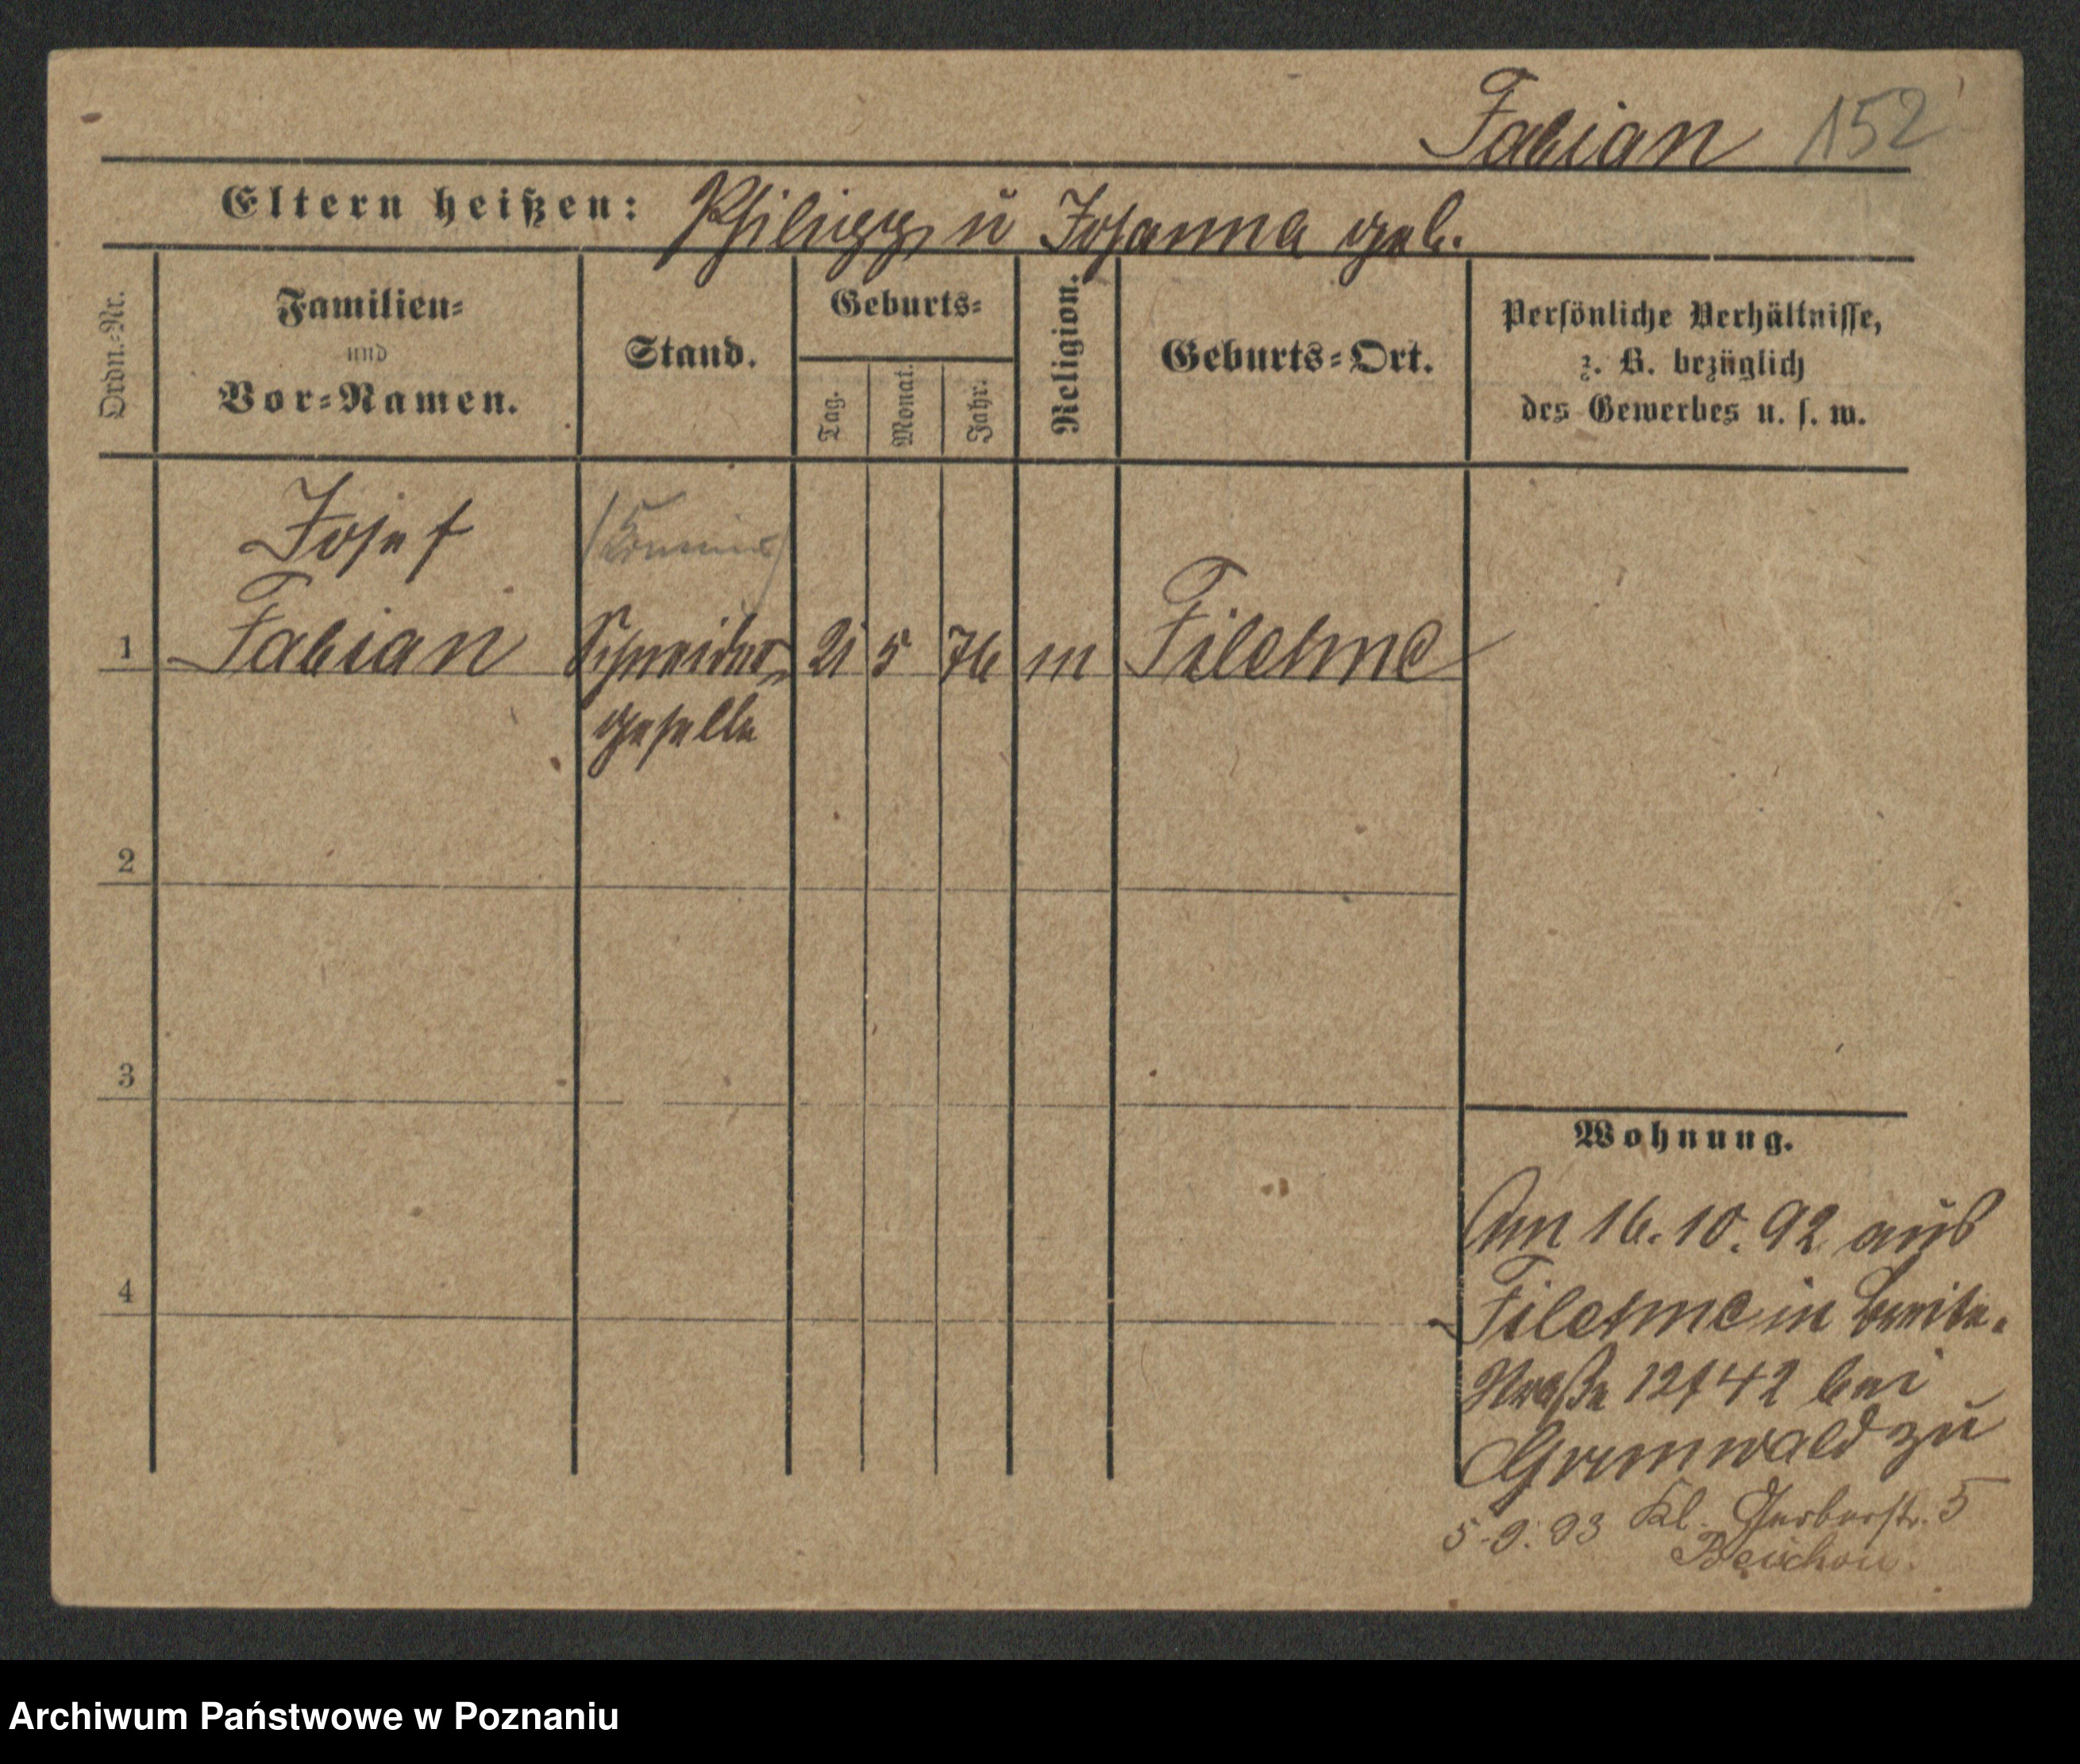 Fabian 152
Eltern heißen: Philipp u Johanna geb.
Ordn.-Nr.
Familien-
und
Vor-Namen.
Stand.
Geburts-
Tag.
Monat.
Jahr.
Religion.
Geburts-Ort.
Persönliche Verhältnisse,
z. B. bezüglich
des Gewerbes u. s. w.
Josef
1 Fabian Schneider- 21 5 76 m Filehne
geselle
2
3
4
Wohnung.
Am 16.10.92 aus
Filehne in Breite-
Straße 12/42 bei
Grunwald zu
5.9.93 Kl. Gerberstr. 5
Archiwum Państwowe w Poznaniu